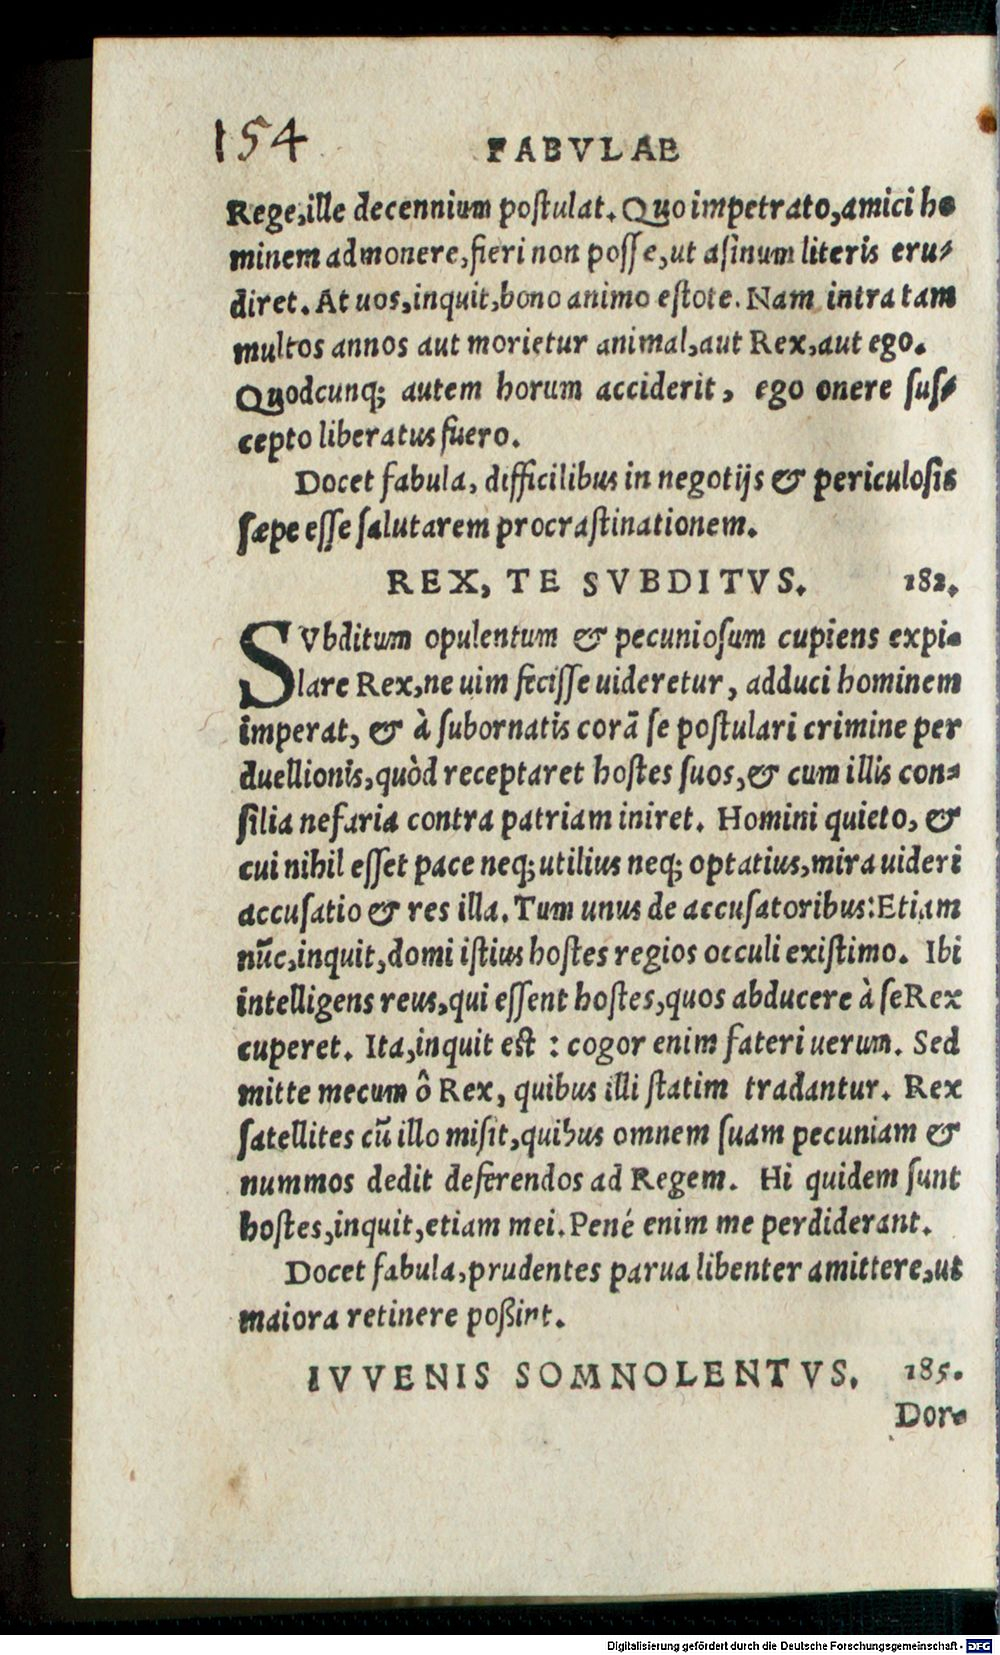 154
FABVLAE
Rege, ille decennium postulat. Quo impetrato, amici ho
minem admonere, fieri non posse, ut asinum literis eru-
diret. At uos, inquit, bono animo estote. Nam intra tam
multos annos aut morietur animal, aut Rex, aut ego.
Quodcunq; autem horum acciderit, ego onere sus-
cepto liberatus fuero.
Docet fabula, difficilibus in negotijs & periculosis
sæpe esse salutarem procrastinationem.
REX, TE SVBDITVS. 182.
SVbditum opulentum & pecuniosum cupiens expi-
lare Rex, ne uim fecisse uideretur, adduci hominem
imperat, & à subornatis corā se postulari crimine per
duellionis, quòd receptaret hostes suos, & cum illis con-
silia nefaria contra patriam iniret. Homini quieto, &
cui nihil esset pace neq; utilius neq; optatius, mira uideri
accusatio & res illa. Tum unus de accusatoribus: Etiam
nūc, inquit, domi istius hostes regios occuli existimo. Ibi
intelligens reus, qui essent hostes, quos abducere à se Rex
cuperet. Ita, inquit est : cogor enim fateri uerum. Sed
mitte mecum ô Rex, quibus illi statim tradantur. Rex
satellites cū illo misit, quibus omnem suam pecuniam &
nummos dedit deferendos ad Regem. Hi quidem sunt
hostes, inquit, etiam mei. Pené enim me perdiderant.
Docet fabula, prudentes parua libenter amittere, ut
maiora retinere poßint.
IVVENIS SOMNOLENTVS. 185.
Dor-
Digitalisierung gefördert durch die Deutsche Forschungsgemeinschaft - DFG